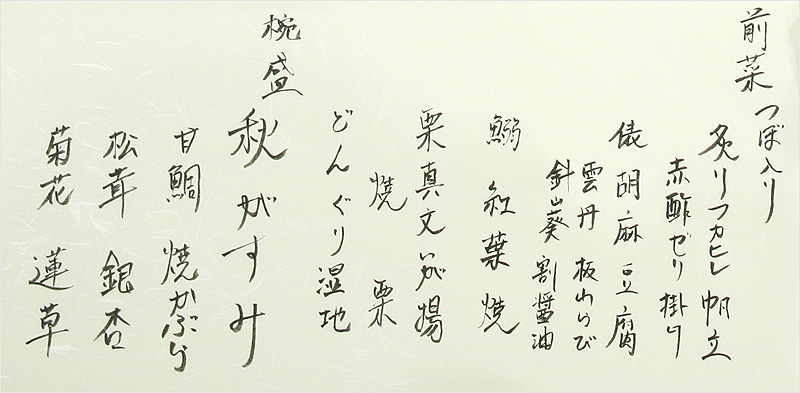 前菜 つぼ入り
炙りフカヒレ 帆立
赤酢ゼリ掛け
俵胡麻豆腐
雲丹 板わらび
斜山葵 割醤油
鰯紅葉焼
栗真文いが揚
焼栗
どんぐり湿地
椀盛
秋がすみ
甘鯛 焼かぶら
松茸 銀杏
菊花 蓮草